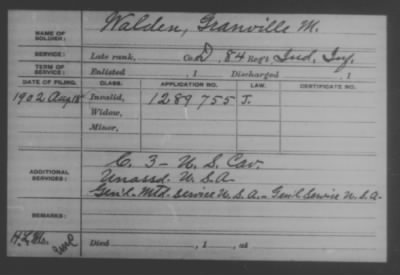 NAME OF SOLDIER: Walden, Granville M.
SERVICE: Late rank, Co. D, 84 Reg't Ind. Inf.
TERM OF SERVICE: Enlisted , 1 Discharged , 1
DATE OF FILING. CLASS. APPLICATION NO. LAW. CERTIFICATE NO.
1902 Aug 18 Invalid, 1289755 J.
Widow,
Minor,
ADDITIONAL SERVICES: C. 3 - U. S. Cav.
Unassd. U. S. A.
Gen'l - Mtd. Service U. S. A. - Gen'l Service U. S. A.
REMARKS:
Died , 1 , at